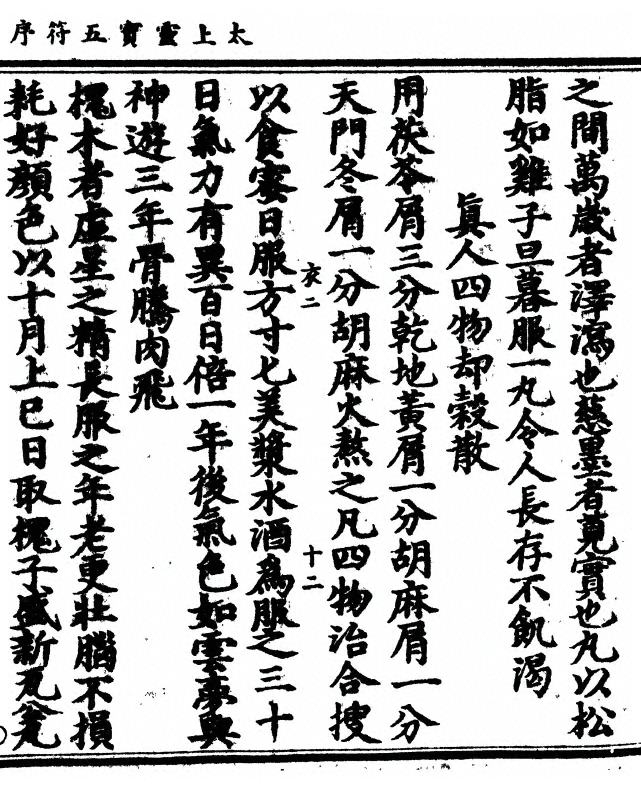 太上靈寶五符序
之間萬歲者澤瀉也慈墨者莧實也丸以松
脂如雞子旦暮服一丸令人長存不飢渴
眞人四物却穀散
用茯苓屑三分乾地黃屑一分胡麻屑一分
天門冬屑一分胡麻火熬之凡四物治合搜
亥二
十二
以食蜜日服方寸匕美漿水酒爲服之三十
日氣力有異百日倍一年後氣色如雲夢與
神遊三年骨騰肉飛
槐木者虛星之精長服之年老更壯腦不損
耗好顏色以十月上巳日取槐子盛新瓦瓮